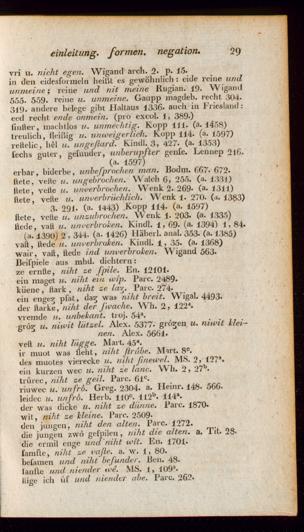 einleitung. formen. negation. 29
vri u. nicht egen. Wigand arch. 2. p. 15.
in den eidesformeln heißt es gewöhnlich: eide reine und
unmeine; reine und nit meine Rugian. 19. Wigand
555. 559. reine u. unmeine. Gaupp magdeb. recht 304.
319. andere belege gibt Haltaus 1336. auch in Friesland:
eed recht ende onmein. (pro excol. 1, 389.)
finster, machtlos u. unmechtig. Kopp 111. (a. 1458)
treulich, fleißig u. unweigerlich. Kopp 114. (a. 1597)
reftelic, hêl u. ungeflard. Kindl. 3, 427. (a. 1353)
sechs guter, gesunder, unberupfter gense. Lennep 216.
(a. 1597)
erbar, biderbe, unbesprochen man. Bodm. 667. 672.
stete, veste u. ungebrochen. Watch 6, 255. (a. 1331)
stete, veste u. unverbrochen. Wenk 2. 269. (a. 1311)
stete, veste u. unverbrüchlich. Wenk 1. 270. (a. 1383)
3. 291. (a. 1443) Kopp 114. (a. 1597)
stete, veste u. unzubrochen. Wenk 1. 203. (a. 1335)
stede, vast u. unverbroken. Kindl. 1, 69. (a. 1394) 1, 84.
(a. 1390) 2. 344. (a. 1426) Häberl. anal. 353. (a. 1385)
vast, stede u. unverbroken. Kindl. 1, 35. (a. 1368)
wair, vaß, stede ind unverbroken. Wigand 563.
Beispiele aus mhd. dichtern:
ze ernste, niht ze spile. En. 12101.
ein maget u. niht ein wîp. Parc. 2489.
küene, stark, niht ze laz. Parc. 274.
ein engez pfat, daz was niht breit. Wigal. 4493.
der starke, niht der swache. Wh. 2, 122ᵃ.
vremde u. unbekant. troj. 54ᵃ.
grôz u. niwit lützel. Alex. 5377. grôzen u. niwit klei-
nen. Alex. 5661.
vest u. niht lügge. Mart. 45ᵃ.
ir muot was sleht, niht strûbe. Mart. 8ᶜ.
des muotes vierecke u. niht sinewel. MS. 2, 127ᵃ.
ein kurzen wec u. niht ze lanc. Wh. 2, 27ᵇ.
trûrec, niht ze geil. Parc. 61ᵃ.
riuwec u. unfrô. Greg. 2304. a. Heinr. 148. 566.
leidec u. unfrô. Herb. 110ᶜ. 112ᵇ. 114ᵃ.
der was dicke u. niht ze dünne. Parc. 1870.
wit, niht ze kleine. Parc. 2509.
den jungen, niht den alten. Parc. 1272.
die jungen zwô gespilen, niht die alten. a. Tit. 28.
die ermil enge und niht wît. En. 1701.
samfte, niht ze vaste. a. w. 1, 80.
besamen und niht besunder. Ben. 48.
sanfte und niender wê. MS. 1, 109ᵃ.
stige ich ûf und niender abe. Parc. 262.